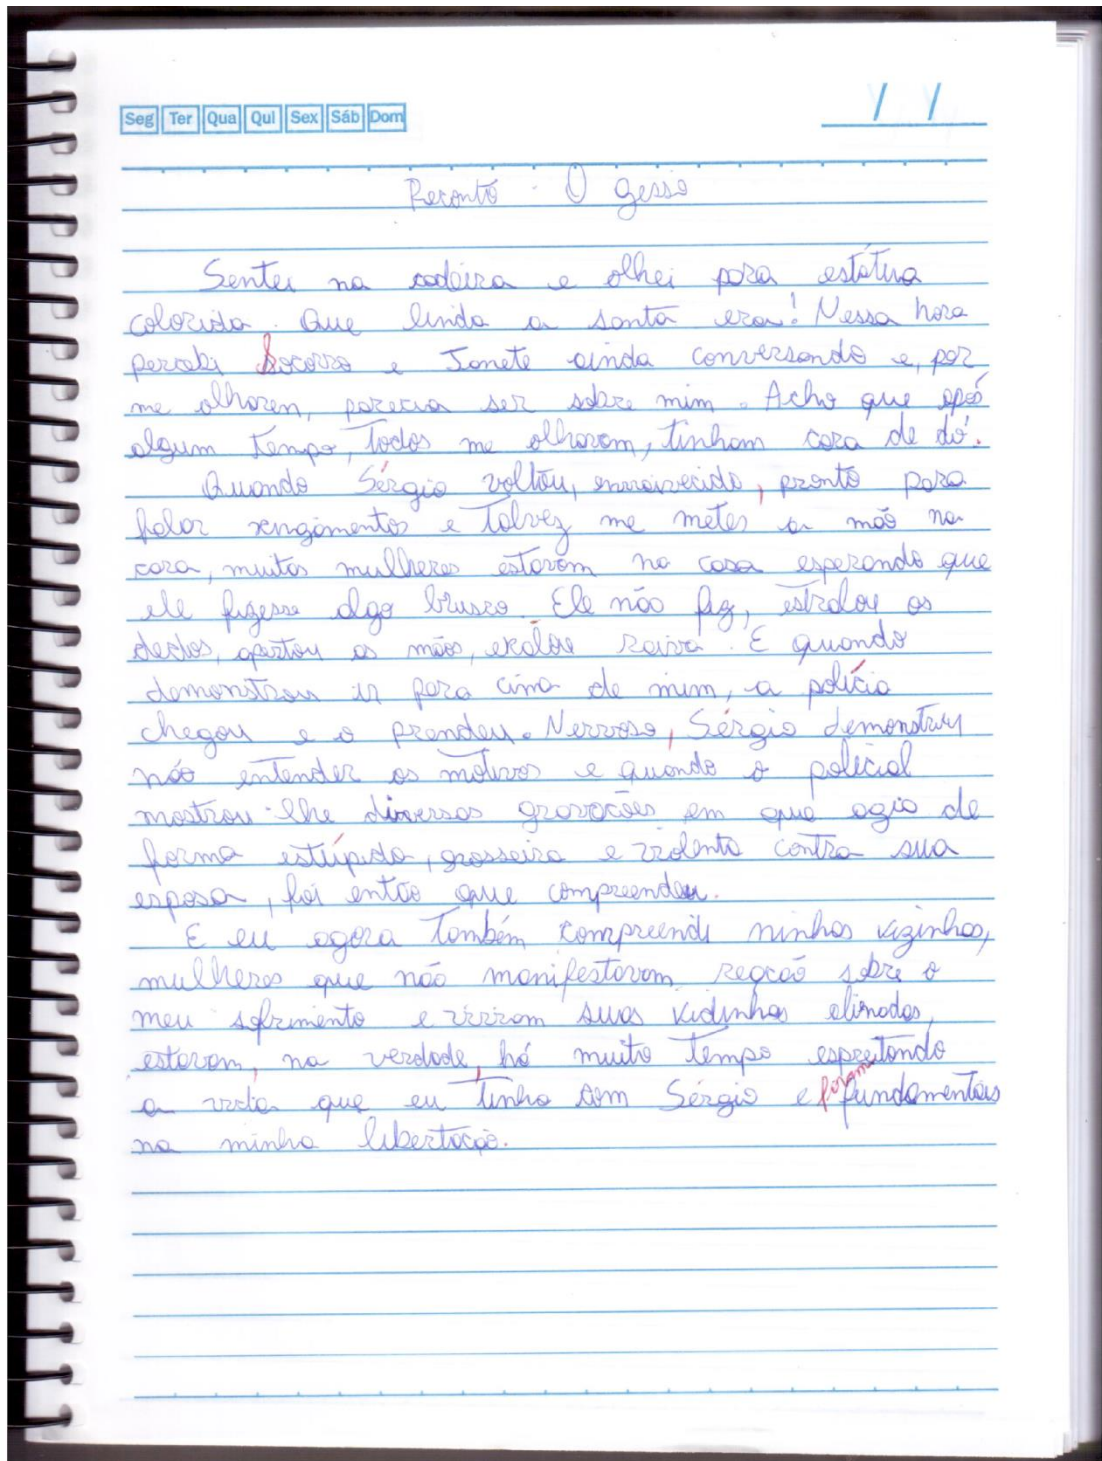 Seg Ter Qua Qui Sex Sáb Dom
/ /
Reconto - O gesso
Sentei na cadeira e olhei para estátua
colorida. Que linda a santa era! Nessa hora
percebi Socorro e Janete ainda conversando e, por
me olharem, parecia ser sobre mim. Acho que após
algum tempo, todos me olharam, tinham cara de dó.
Quando Sérgio voltou, enraivecido, pronto para
falar xingamentos e talvez me meter a mão na
cara, muitas mulheres estavam na casa esperando que
ele fizesse algo brusco. Ele não fez, estralou os
dedos, apertou as mãos, exalou raiva. E quando
demonstrou ir para cima de mim, a polícia
chegou e o prendeu. Nervoso, Sérgio demonstrou
não entender os motivos e quando o policial
mostrou-lhe diversas gravações em que agia de
forma estúpida, grosseira e violenta contra sua
esposa, foi então que compreendeu.
E eu agora também compreendi minhas vizinhas,
mulheres que não manifestavam reação sobre o
meu sofrimento e viviam suas vidinhas
estavam, na verdade, há muito tempo espreitando
a vida que eu tinha com Sérgio e foram fundamentais
na minha libertação.